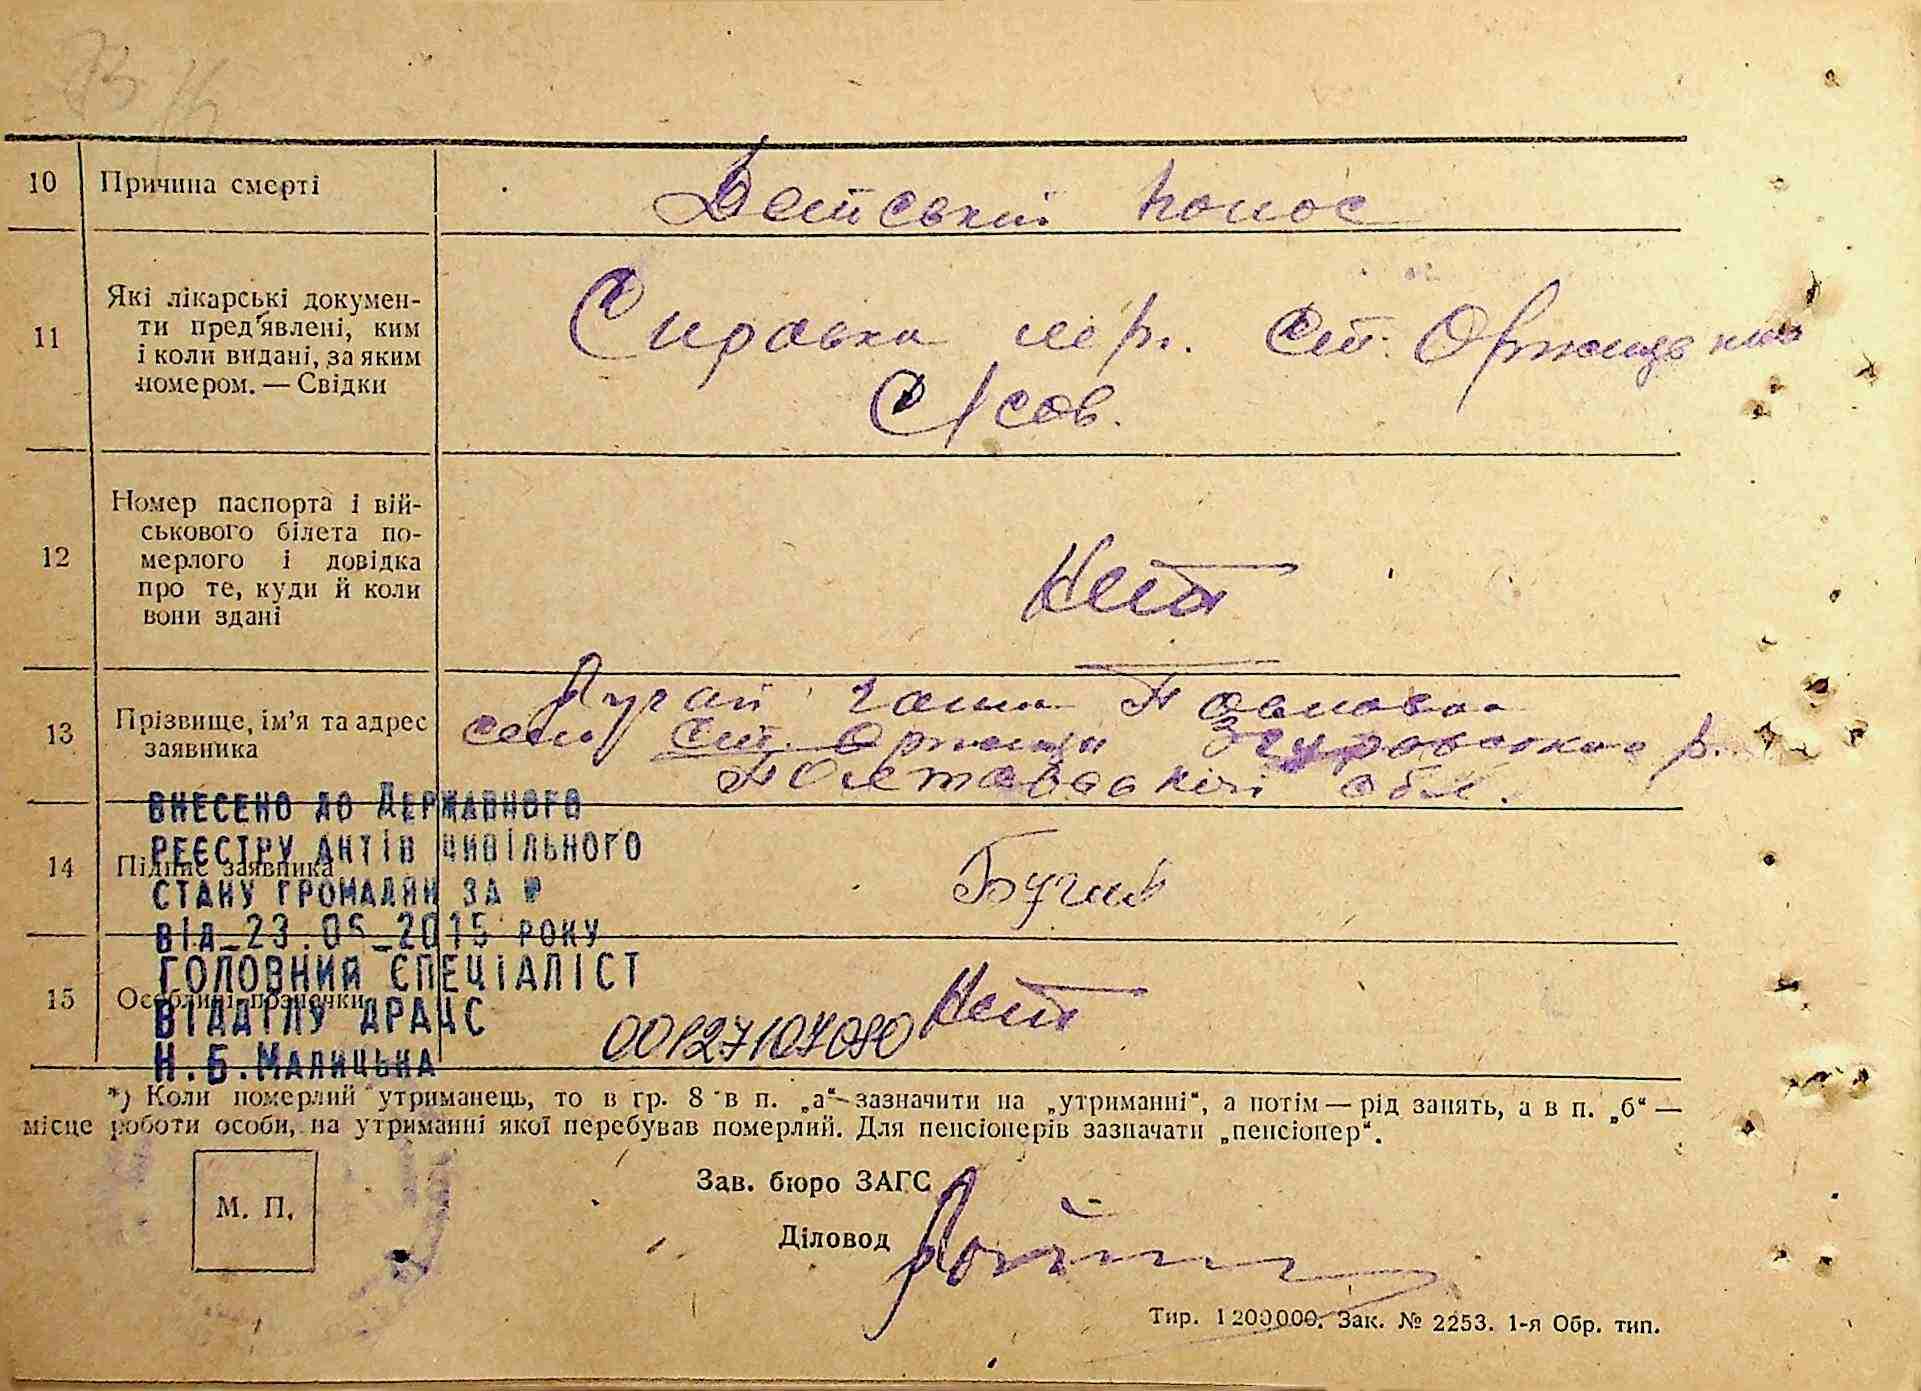 10 Причина смерті Детський понос
11 Які лікарські докумен-
ти пред'явлені, ким
і коли видані, за яким
номером. — Свідки
Справка мер. Ст. Оржицької
С/сов.
12 Номер паспорта і вій-
ськового білета по-
мерлого і довідка
про те, куди й коли
вони здані
Нет
13 Прізвище, ім'я та адрес
заявника
Павловна
село Ст. Оржица Згуровского р.
Полтавській обл.
14 Підпис заявника
15 Особливі позначки Нет
ВНЕСЕНО ДО ДЕРЖАВНОГО
РЕЄСТРУ АКТІВ ЦИВІЛЬНОГО
СТАНУ ГРОМАДЯН ЗА №
ВІД_23.05_2015 РОКУ
ГОЛОВНИЙ СПЕЦІАЛІСТ
ВІДДІЛУ ДРАЦС
Н.Б.МАЛИЦЬКА
00127107080
*) Коли померлий утриманець, то в гр. 8 в п. „а“ зазначити на „утриманні“, а потім — рід занять, а в п. „б“ —
місце роботи особи, на утриманні якої перебував померлий. Для пенсіонерів зазначати „пенсіонер“.
М. П.
Зав. бюро ЗАГС
Діловод
Тир. 1200000. Зак. № 2253. 1-я Обр. тип.